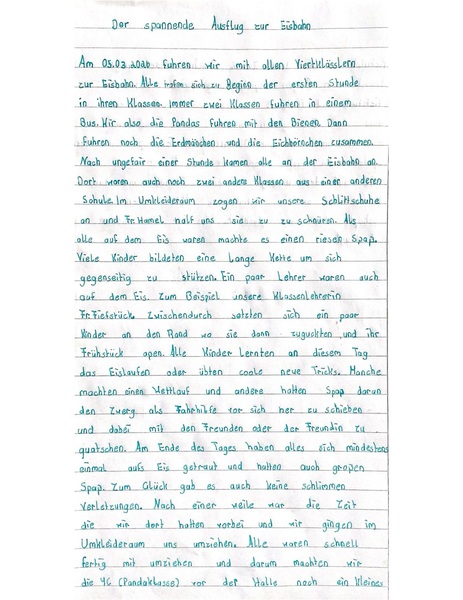 Der spannende Ausflug zur Eisbahn
Am 05.03.2020 fuhren wir mit allen Viertklässlern
zur Eisbahn. Alle trafen sich zu Beginn der ersten Stunde
in ihren Klassen. Immer zwei Klassen fuhren in einem
Bus. Wir also die Pandas fuhren mit den Bienen. Dann
fuhren noch die Erdmänchen und die Eichhörnchen zusammen.
Nach ungefair einer Stunde kamen alle an der Eisbahn an.
Dort waren auch noch zwei andere Klassen aus einer anderen
Schule. Im Umkleideraum zogen wir unsere Schlittschuhe
an und Fr. Hamel half uns sie zu zu schnüren. Als
alle auf dem Eis waren machte es einen riesen Spaß.
Viele Kinder bildeten eine Lange Kette um sich
gegenseitig zu stützen. Ein paar Lehrer waren auch
auf dem Eis. Zum Beispiel unsere Klassenlehrerin
Fr. Tiefstück. Zwischendurch satzten sich ein paar
Kinder an den Rand wo sie dann zuguckten und ihr
Frühstück aßen. Alle Kinder Lernten an diesem Tag
das Eislaufen oder übten coole neue Tricks. Manche
machten einen Wettlauf und andere hatten Spaß daran
den Zwerg als Fahrhilfe vor sich her zu schieben
und dabei mit den Freunden oder der Freundin zu
quatschen. Am Ende des Tages haben alles sich mindestens
einmal aufs Eis getraut und hatten auch großen
Spaß. Zum Glück gab es auch keine schlimmen
verletzungen. Nach einer weile war die Zeit
die wir dort hatten vorbei und wir gingen im
Umkleideraum uns umziehen. Alle waren schnell
fertig mit umziehen und darum machten wir
die 4c (Pandaklasse) vor der Halle noch ein kleines